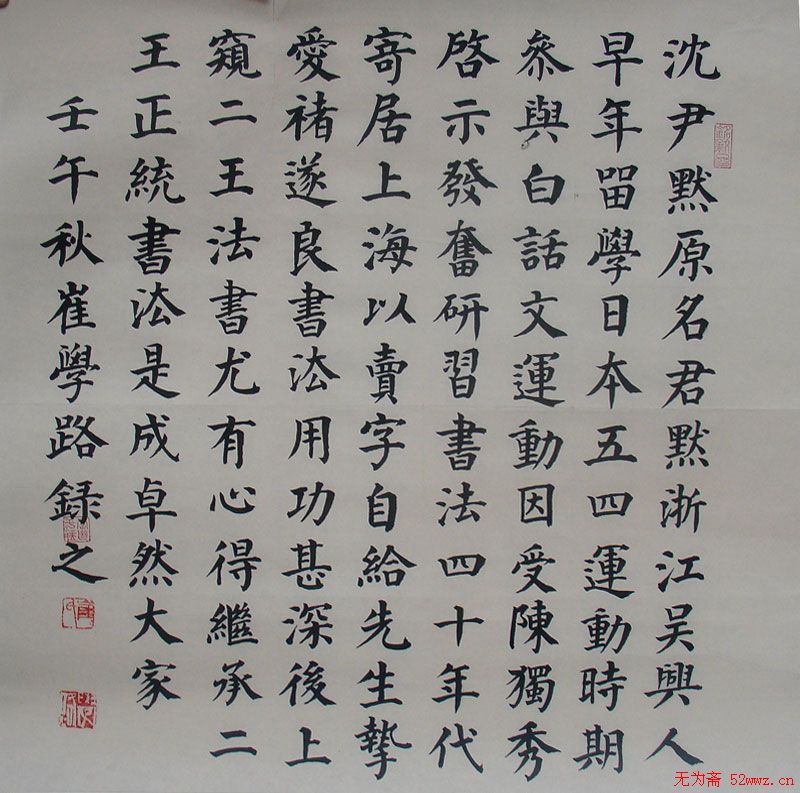 沈尹默原名君默浙江吴興人
早年畱學日本五四運動時期
叅與白話文運動因受陳獨秀
啓示發奮研習書法四十年代
寄居上海以賣字自給先生摯
愛褚遂良書法用功甚深後上
窺二王法書尤有心得繼承二
王正統書法是成卓然大家
壬午秋崔學路録之
无为斋 52wwz.cn